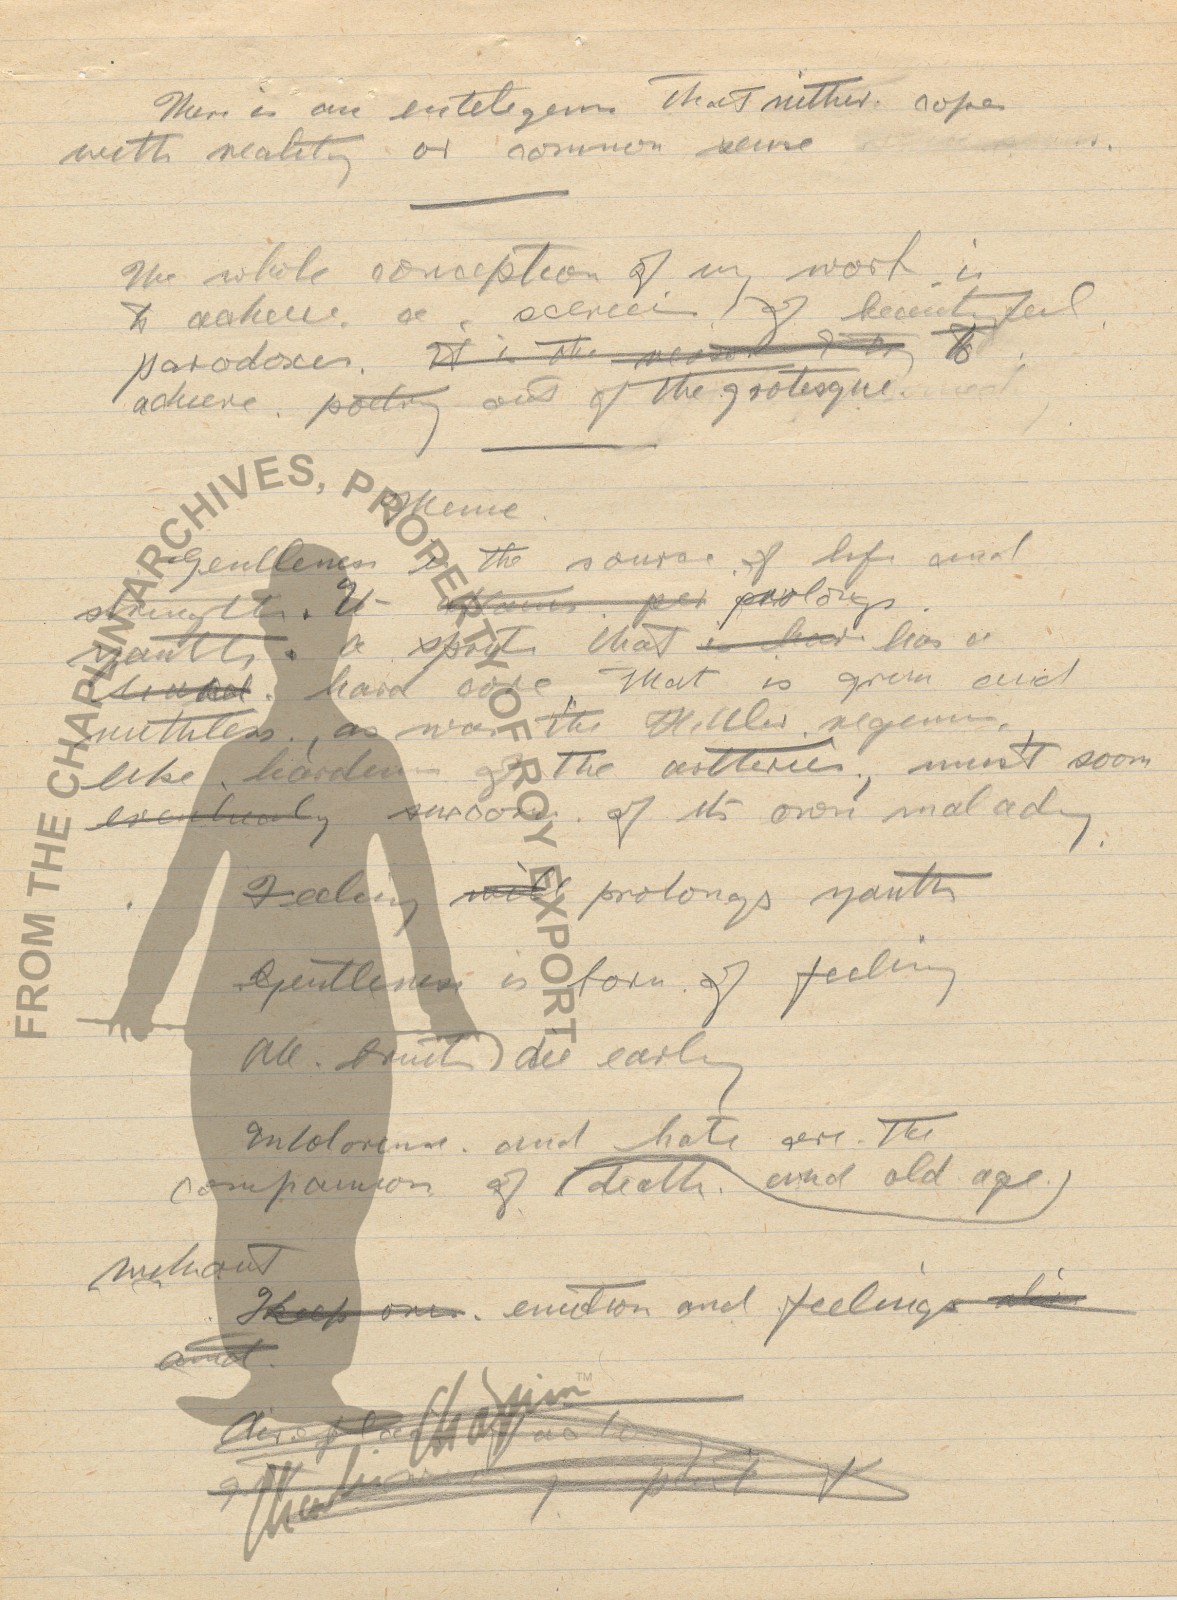 There is an entelegenes that nither. copes
with reality or common sense
The whole conception of my work is
to acheive. a. series of beautyful
paradoxes. It is the reason I try to
acheive. poetry out of the grotesque.
Theme.
Gentleness is the source of life and
strength. It attains per prolongs.
youth. a spirit that is hard has a
hard core, that is grim and
ruthless., as was the Hittler regeme,
like hardening of the artteries, must soon
eventually succomb. of its own malady.
Feeling will prolongs youth
Gentleness is born of feeling
All. bruits die early
Intolorense. and hate are. the
companion of death. and old age.
without
Keep ones. emotion and feelings alive
and.
Charlie Chaplin™
FROM THE CHAPLIN ARCHIVES, PROPERTY OF ROY EXPORT